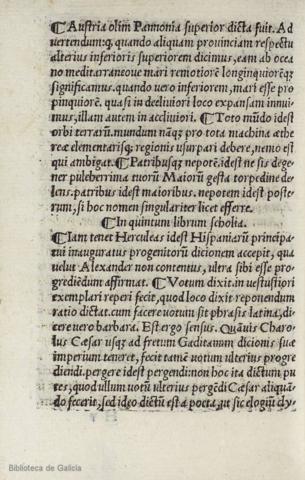 ¶Austria olim Pannonia superior dicta fuit. Ad
vertendumq; quando aliquam prouinciam respectu
alterius inferioris superiorem dicimus, eam ab ocea
no mediterraneoue mari remotiorē longinquiorēq;
significamus. quando vero inferiorem, mari esse pro
pinquiorē. quasi in decliuiori loco expansam innui
mus, illam autem in accliuiori. ¶Toto mūdo idest
orbi terrarū. mundum nāq; pro tota machina æthe
rea elementarisq; regionis vsurpari debere, nemo est
qui ambigat. ¶Patribusq; nepotē. idest ne sis dege-
ner pulcherrima tuorū Maiorū gesta torpedine de-
lens. patribus idest maioribus. nepotem idest poste-
rum, si hoc nomen singulariter licet efferre.
¶In quintum librum scholia.
¶Iam tenet Herculeas idest Hispaniarū principa-
tui inauguratus progenitorū dicionem accepit, qua
velut Alexander non contentus, vltra sibi esse pro-
grediēdum affirmat. ¶Votum dixit. in vestustiori
exemplari reperi fecit, quod loco dixit reponendum
ratio dictat. cum facere votum sit phrasis latina, di-
cere vero barbara. Est ergo sensus. Quāuis Charo-
lus Cæsar vsq; ad fretum Gaditanum dicionis suæ
imperium teneret, fecit tamē votum vlterius progre
diendi. pergere idest pergendi: non hoc ita dictum pu
tes, quod vllum votū vlterius pergēdi Cæsar aliquā-
do fecerit, sed ideo dictū est a poeta, vt sic elogiū dy-
Biblioteca de Galicia